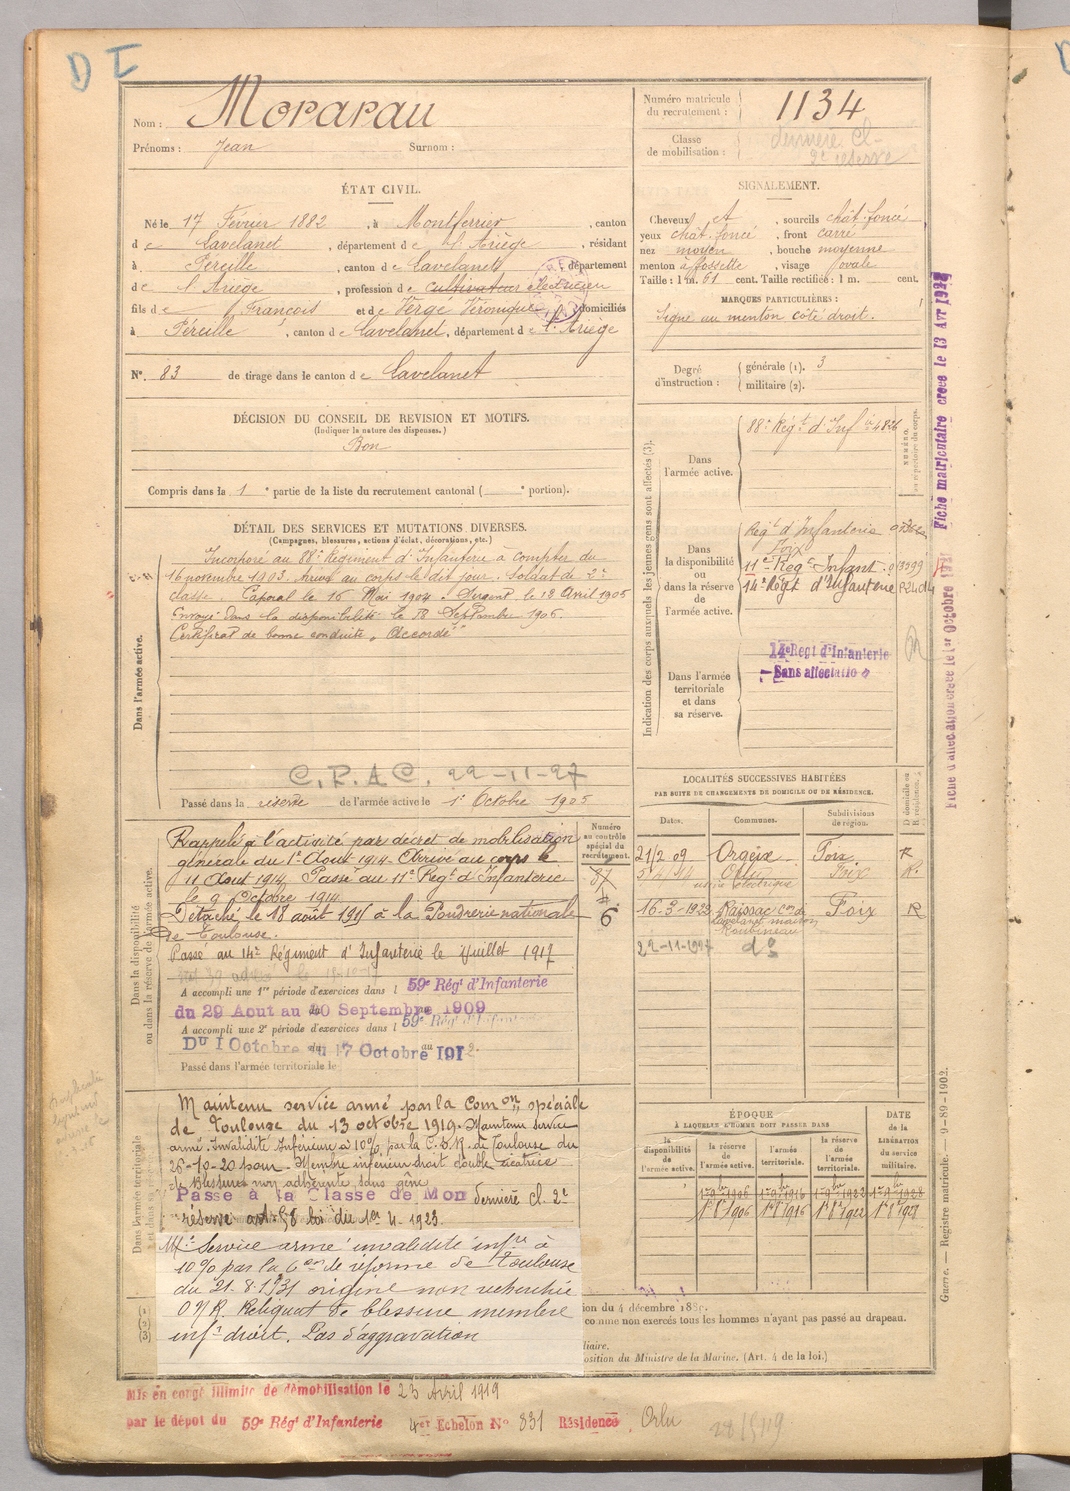 D I
Nom : Morarau
Prénoms : Jean Surnom :
Numéro matricule du recrutement : 1134
Classe de mobilisation : dernière Cl. 2e réserve
ÉTAT CIVIL.
Né le 17 Février 1882, à Montferrier, canton
de Lavelanet, département de l'Ariège, résidant
à Péreille, canton de Lavelanet, département
de l'Ariège, profession de cultivateur électricien
fils de François et de Vergé Véronique domiciliés
à Péreille, canton de Lavelanet, département de l'Ariège
N° 83 de tirage dans le canton de Lavelanet
SIGNALEMENT.
Cheveux et, sourcils chât. foncé
yeux chât. foncé, front carré
nez moyen, bouche moyenne
menton à fossette, visage ovale
Taille : 1 m. 61 cent. Taille rectifiée : 1 m. cent.
MARQUES PARTICULIÈRES :
Signe au menton côté droit.
Degré d'instruction : générale (1). 3
militaire (2).
DÉCISION DU CONSEIL DE REVISION ET MOTIFS.
(Indiquer la nature des dispenses.)
Bon
Compris dans la 1e partie de la liste du recrutement cantonal ( e portion).
DÉTAIL DES SERVICES ET MUTATIONS DIVERSES.
(Campagnes, blessures, actions d'éclat, décorations, etc.)
Dans l'armée active.
Incorporé au 88e Régiment d'Infanterie à compter du
16 novembre 1903. Arrivé au corps le dit jour. Soldat de 2e
classe. Caporal le 16 Mai 1904. Sergent le 18 Avril 1905
Envoyé dans la disponibilité le 18 Septembre 1906.
Certificat de bonne conduite "Accordé"
C.R.A.C. 22-11-27
Passé dans la réserve de l'armée active le 1er Octobre 1905
Indication des corps auxquels les jeunes gens sont affectés (3).
NUMÉRO au répertoire du corps.
Dans l'armée active.
88e Régt d'Inf ie 4826
Dans la disponibilité ou dans la réserve de l'armée active.
Régt d'Infanterie
Foix
11e Régt Infant.
14e Régt d'Infanterie
Dans l'armée territoriale et dans sa réserve.
14e Regt d'Infanterie
Sans affectation
Fiche matriculaire créée le 13 Avr
Fiche d'affectation créée le 1er Octobre
Dans la disponibilité ou dans la réserve de l'armée active.
Numéro au contrôle spécial du recrutement.
87
6
Rappelé à l'activité par décret de mobilisation
générale du 1er Août 1914. Arrivé au corps le
11 Août 1914. Passé au 11e Régt d'Infanterie
le 9 Octobre 1914
Détaché le 18 août 1915 à la Poudrerie nationale
de Toulouse.
Passé au 14e Régiment d'Infanterie le 1 Juillet 1917
A accompli une 1re période d'exercices dans l 59e Régt d'Infanterie
du 29 Aout au 20 Septembre 1909
A accompli une 2e période d'exercices dans l 59e Régt d'Infanterie
Du 1 Octobre au 17 Octobre 191
Passé dans l'armée territoriale le
LOCALITÉS SUCCESSIVES HABITÉES
PAR SUITE DE CHANGEMENTS DE DOMICILE OU DE RÉSIDENCE.
Dates. Communes. Subdivisions de région. D domicile ou R résidence.
21/2 09 Orgeix Foix R
Orlu usine électrique Foix R.
16-3-1922 Raissac Cne de Lavelanet maison Roubineau Foix R
22-11-1927 do
Dans l'armée territoriale
Maintenu service armé par la Comon spéciale
de Toulouse du 13 octobre 1919. Maintenu service
armé. Invalidité inférieure à 10% par la C.D.R. de Toulouse du
26-10-20 pour. Membre inférieur droit double cicatrice
de blessure non adhérente sans gêne
Passé à la Classe de Mon dernière cl. 2e
réserve art. 58 loi du 1er 4. 1923.
Mt Service armé invalidité infre à
10% par la Con de réforme de Toulouse
du 21-8-1931 origine non recherchée
Reliquat de blessure membre
infr droit. Pas d'aggravation
ÉPOQUE
À LAQUELLE L'HOMME DOIT PASSER DANS
la disponibilité de l'armée active. la réserve de l'armée active. l'armée territoriale. la réserve de l'armée territoriale.
DATE de la LIBÉRATION du service militaire.
1er 9bre 1906 1er 9bre 1916 1er 9bre 1922 1er 9bre 1928
(1)
(2)
(3)
ion du 4 décembre
comme non exercés tous les hommes n'ayant pas passé au drapeau.
liaire.
osition du Ministre de la Marine. (Art. 4 de la loi.)
Guerre. — Registre matricule. — 9-89-1902.
Mis en congé illimité de démobilisation le 23 Avril 1919
par le dépôt du 59e Régt d'Infanterie 4er Echelon N° 831 Résidence Orlu